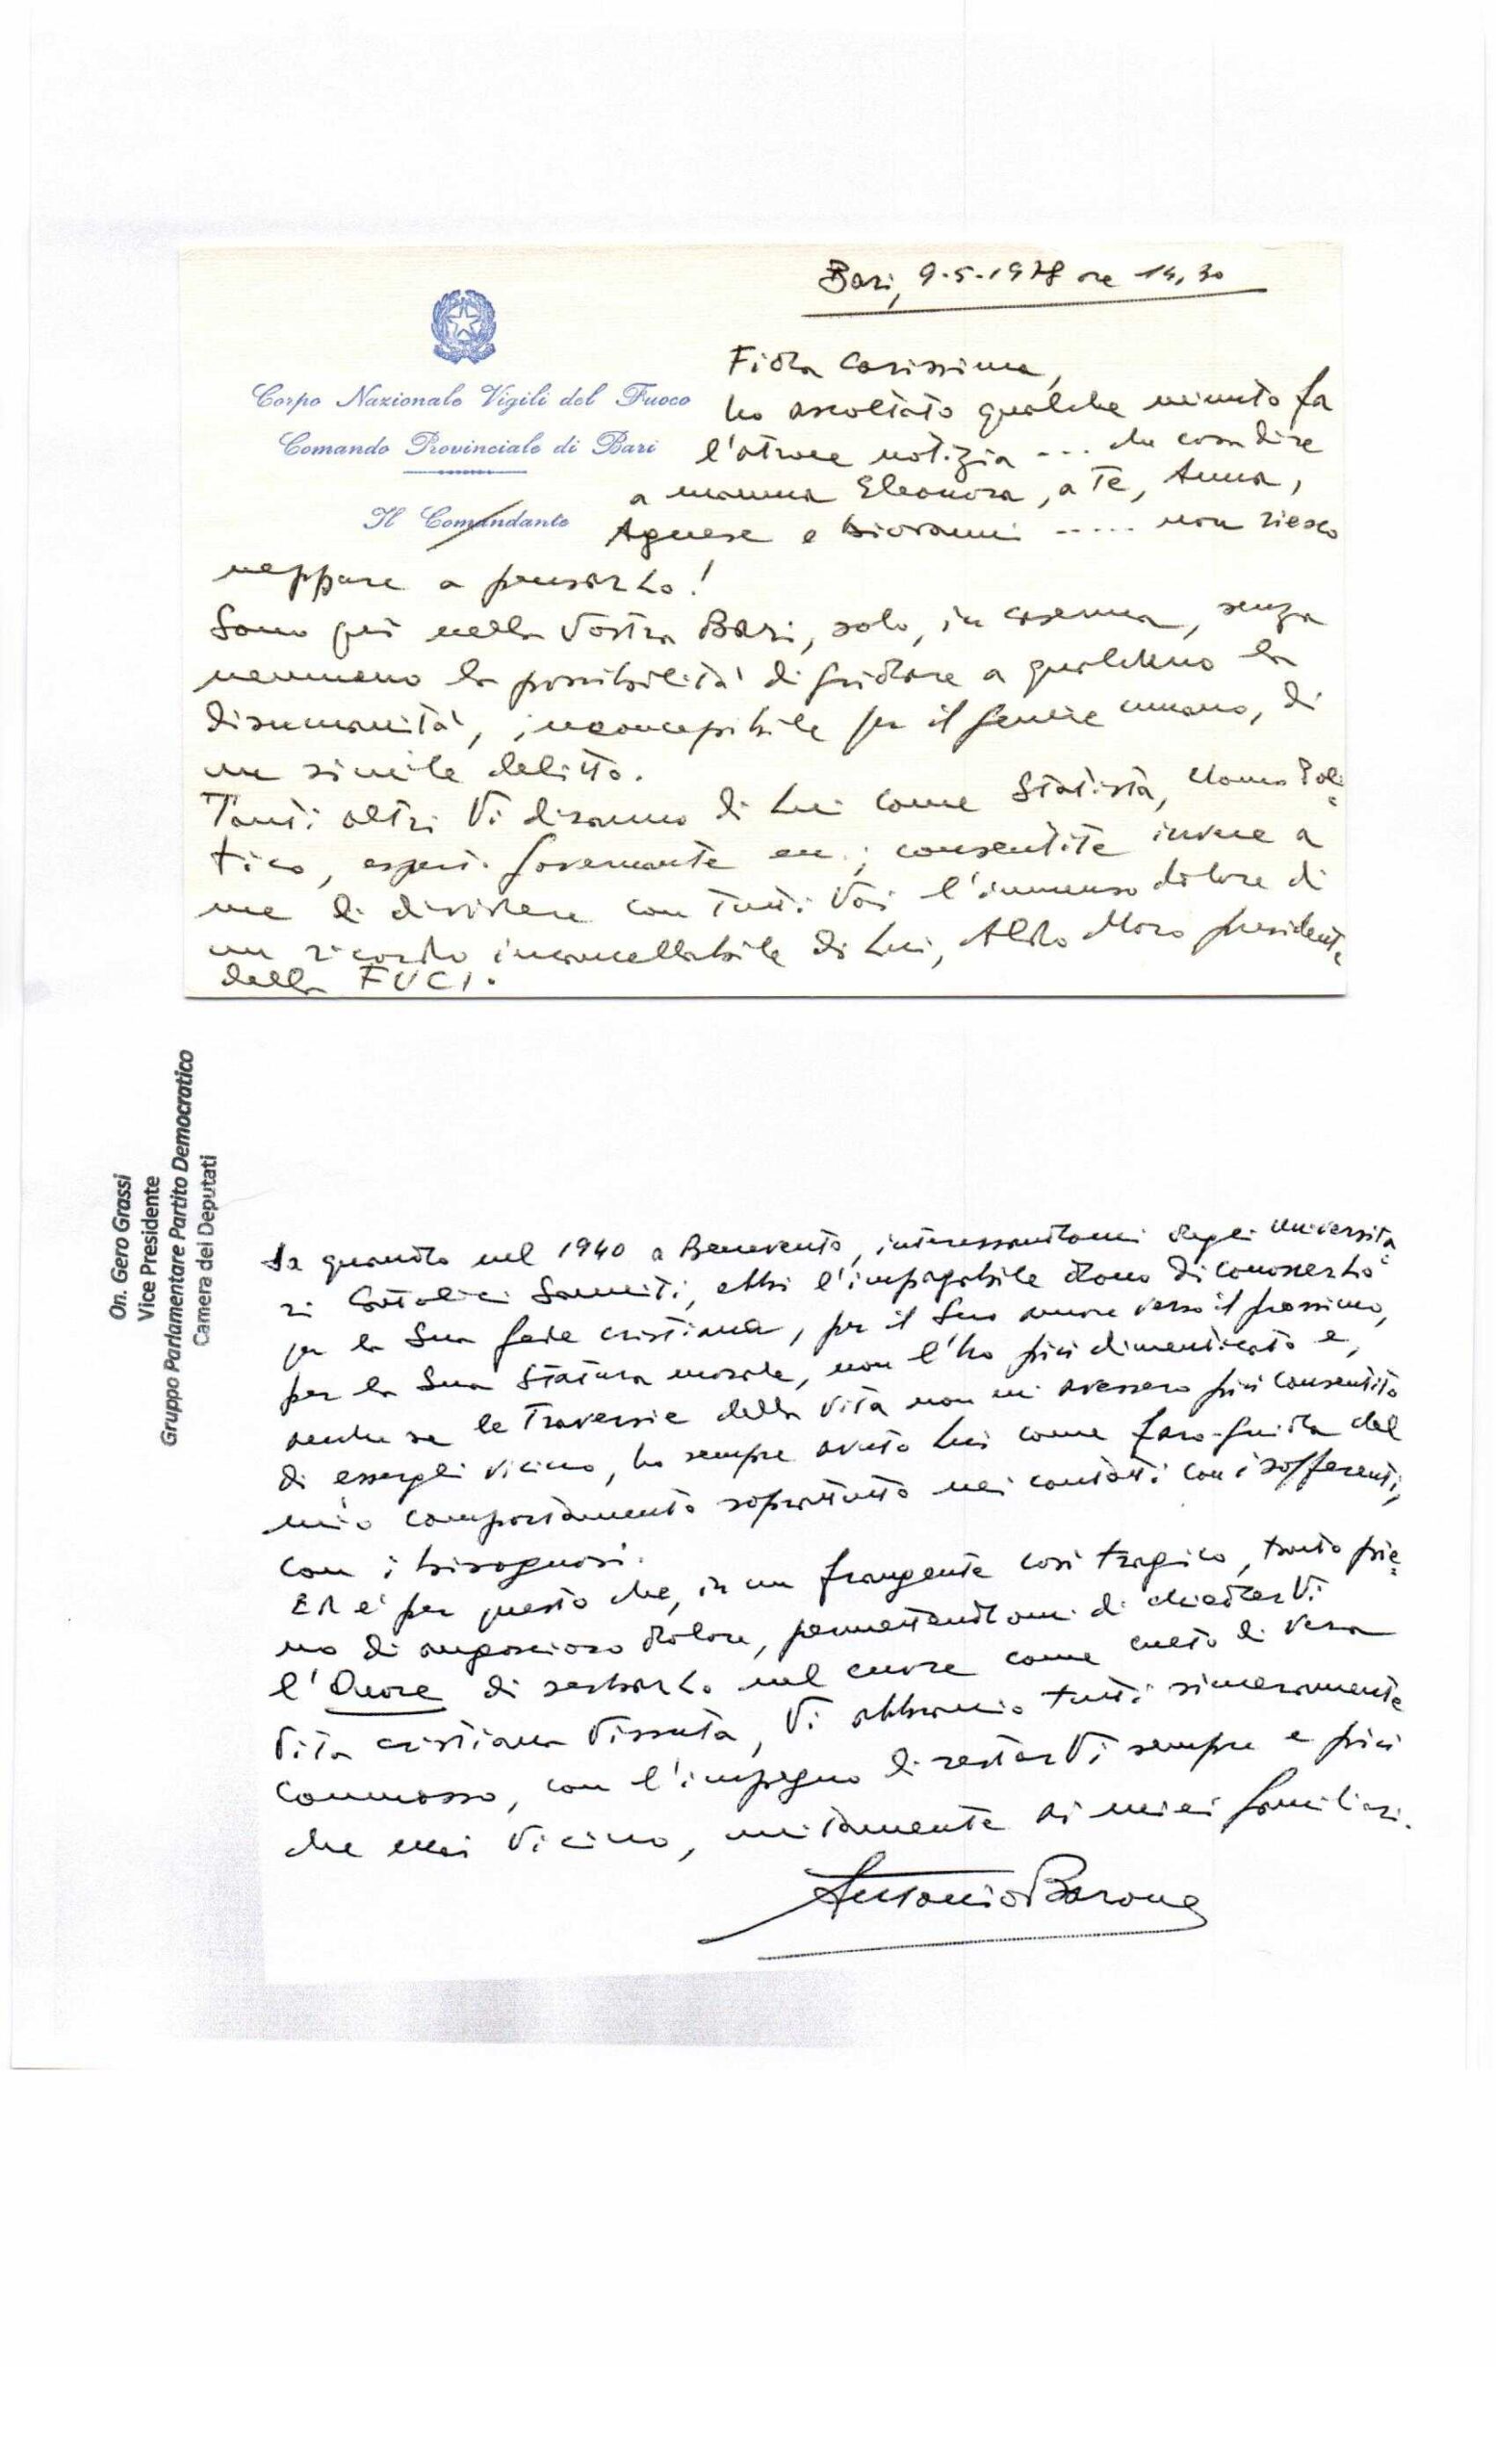 Bari, 9-5-1978 ore 14,30
Corpo Nazionale Vigili del Fuoco
Comando Provinciale di Bari
Il Comandante
Fida Carissima,
ho ascoltato qualche minuto fa
l'atroce notizia --- che cosa dire
a mamma Eleonora, a Te, Anna,
Agnese e Giovanni ----- non riesco
neppure a pensarLo!
Sono qui nella Vostra Bari, solo, in caserma, senza
nemmeno la possibilità di gridare a qualcuno la
disumanità, inconcepibile per il genere umano, di
un simile delitto.
Tanti altri Vi diranno di Lui come Statista, Uomo Poli=
tico, governante ecc.; consentite invece a
me di dividere con Tutti Voi l'immenso dolore di
un ricordo incancellabile di Lui, Aldo Moro presidente
della FUCI.
On. Gero Grassi
Vice Presidente
Gruppo Parlamentare Partito Democratico
Camera dei Deputati
Da quando nel 1940 a Benevento, interessandomi degli Universita=
ri Cattolici Sanniti, ebbi l'impagabile dono di conoscerLo
per la Sua fede cristiana, per il Suo amore verso il prossimo,
per la Sua Statura morale, non l'ho più dimenticato e,
anche se le Traversie della Vita non mi avessero più consentito
di essergli vicino, ho sempre avuto Lui come faro-guida del
mio comportamento soprattutto nei contatti con i sofferenti,
con i bisognosi.
Ed è per questo che, in un frangente così tragico, tanto pie=
no di angoscioso dolore, permettendomi di chiederVi
l'Onore di serbarLo nel cuore come culto di vera
Vita cristiana Vissuta, Vi abbraccio tutti sinceramente
Commosso, con l'impegno di restarVi sempre e più
che mai Vicino, unitamente ai miei familiari.
Antonio Barone